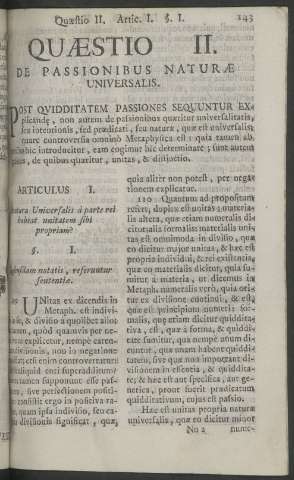 Quæstio II. Artic. I. §. I. 143
QUÆSTIO II.
DE PASSIONIBUS NATURÆ
UNIVERSALIS.
POST QUIDDITATEM PASSIONES SEQUUNTUR EX-
plicandæ, non autem de passionibus quæritur universalitatis,
seu intentionis, sed prædicati, seu natura, quæ est universalis;
quare controversia omninò Metaphysica est: quia tamen ab
hic introducitur, eam cogimur hic determinare; sunt autem
de quibus quæritur, unitas, & distinctio.
ARTICULUS I.
natura Universalis à parte rei
habeat unitatem sibi
propriam?
§. I.
notatis, referuntur
sententiæ.
UNitas ex dicendis in
Metaph. est indivi-
& divisio à quolibet alio:
quòd quamvis per ne-
explicetur, nempè caren-
divisionis, non in negatione
est enim controvertamus
aliquid enti superadditum:
tamen supponunt esse pas-
sive perfectionem positi-
consistit ergo in positiva ra-
quam ipsa indivisio, seu ca-
divisionis significat, quæ,
quia aliter non potest, per negati-
tionem explicatur.
110 Quantum ad propositum
refert, duplex est unitas: materia-
lis altera, quæ etiam numeralis di-
citur alia formalis: materialis uni-
tas est omnimoda in diviso, qua
eo dicitur major unitas, & hæc est
propria individui, & rei existentis;
quæ eo materialis dicitur, quia su-
mitur à materia, ut dicemus in
Metaph. numeralis verò, quia oritur
ex divisione continui, & est,
quæ est principium numeri: for-
malis, quæ etiam dicitur quiddita-
tiva, est, quæ à forma, & quiddi-
tate sumitur, qua nempè unum di-
cuntur, quæ unam habent quiddi-
tatem, sive quæ non important di-
visionem in essentia, & quiddita-
te; & hæc est aut specifica, aut ge-
nerica, prout fuerit prædicatum
quidditativum, cujus est passio.
Hæc est unitas propria naturæ
universalis, quæ eo dicitur minor
Nn 2 nume-